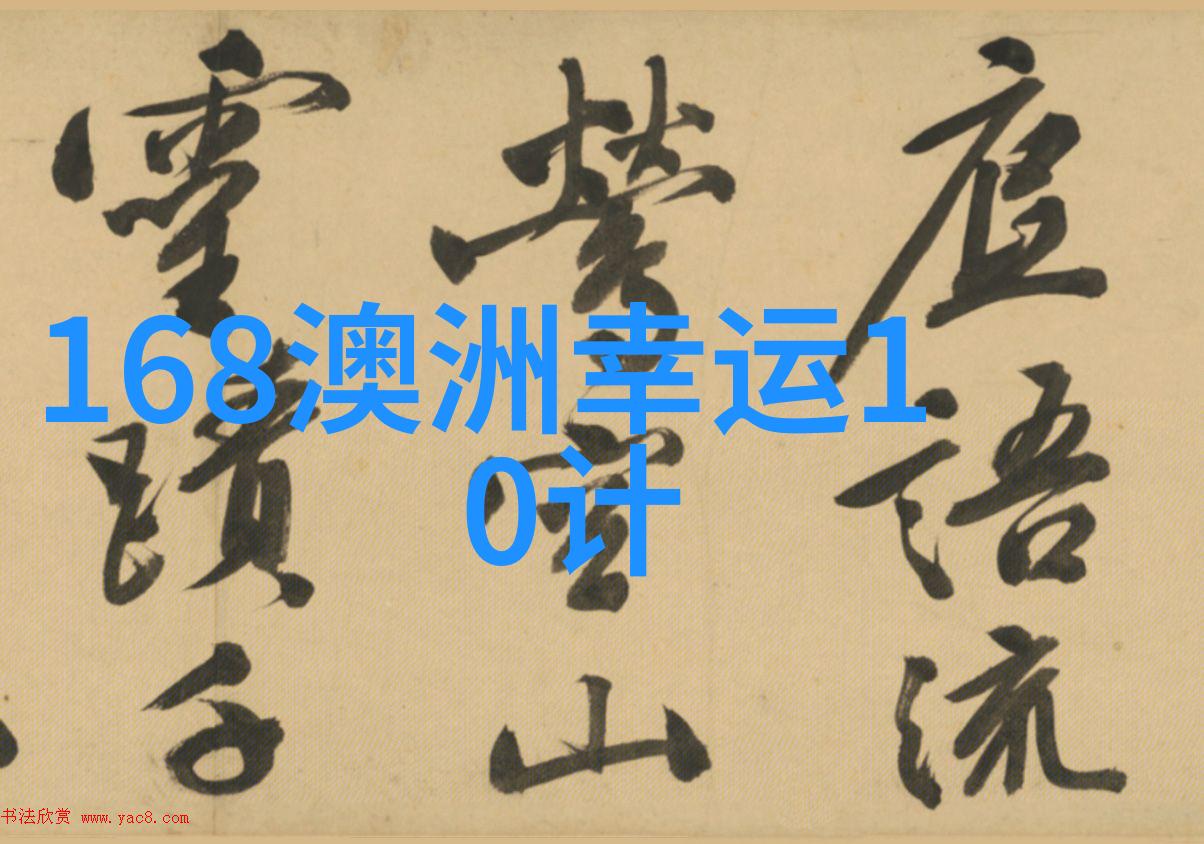 168澳洲幸运1
0计
語流
山
靈蹟千
书法欣赏 www.yac8.com